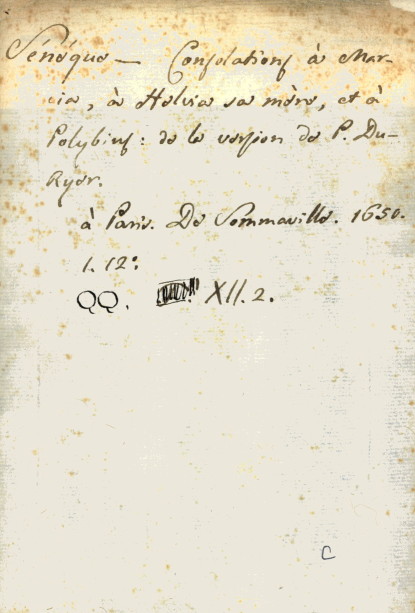 Sénéque — Consolations à Mar-
cia, à Helvia sa mére, et à
Polybius: de la version de P. Du-
Ryer.
à Paris. De Sommaville. 1650.
1. 12°:
QQ. XII. 2.
C